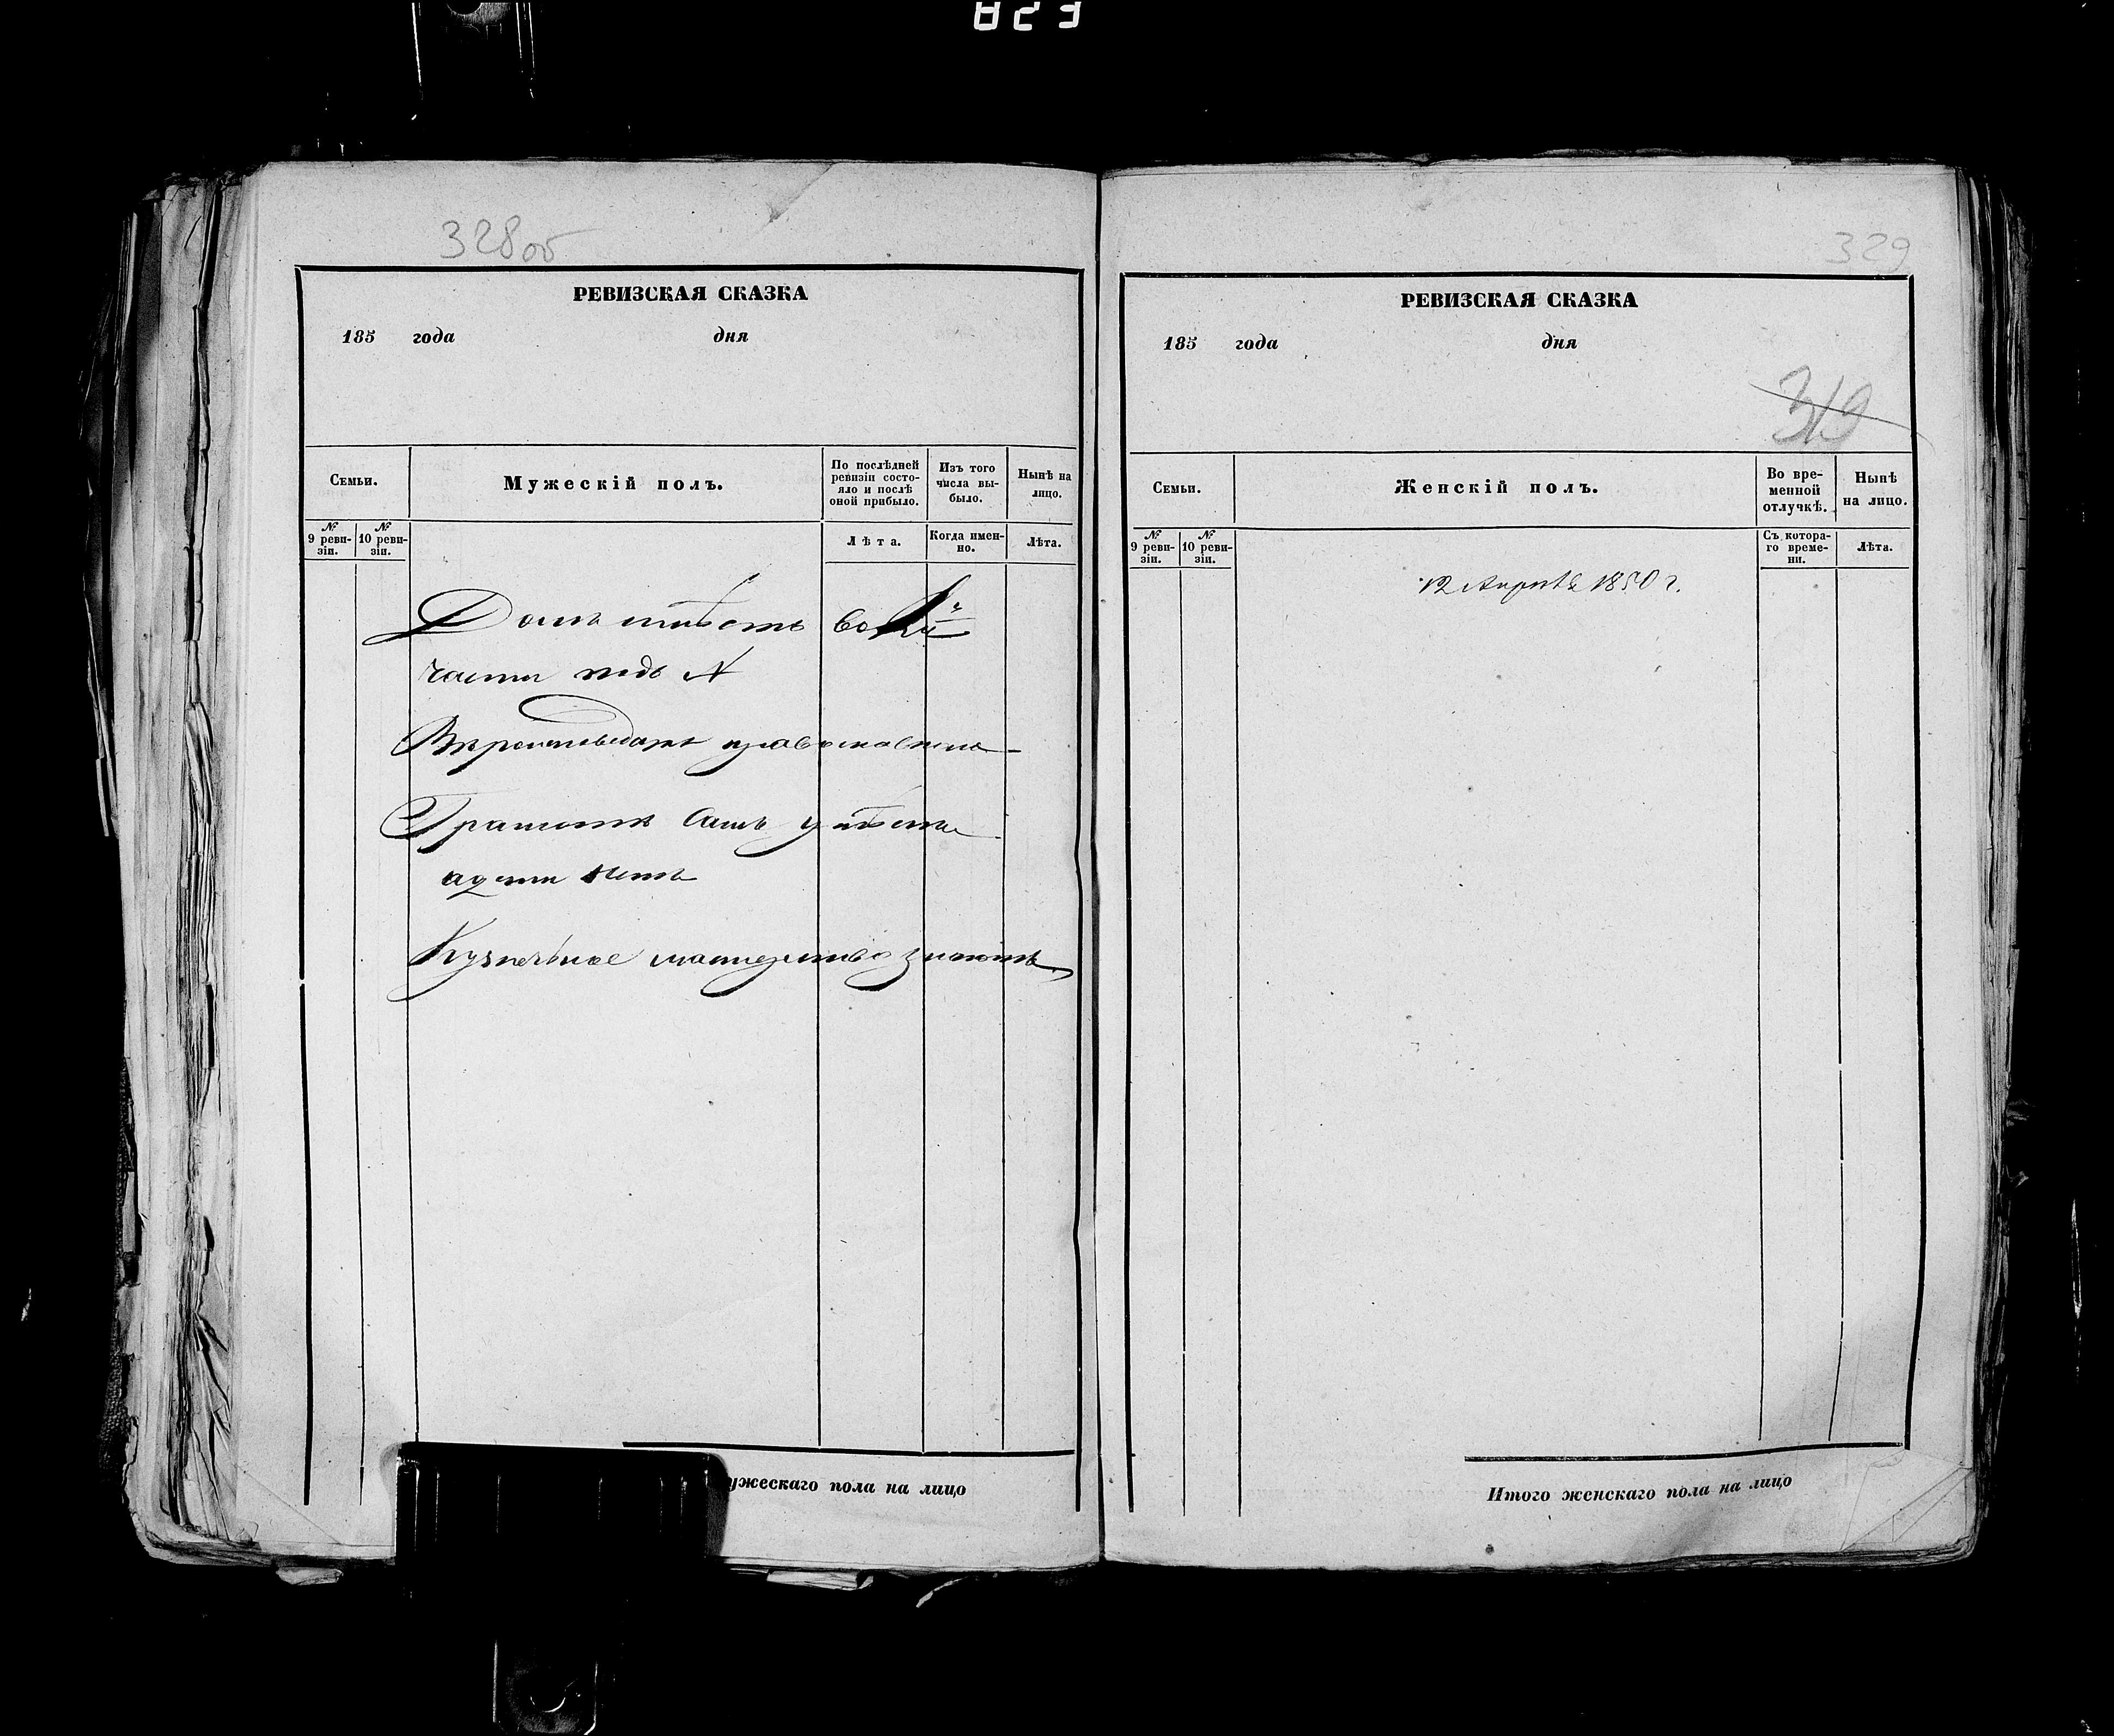 823
328 об
РЕВИЗСКАЯ СКАЗКА
185 года дня
Семьи.
Мужескій полъ.
По послѣдней ревизіи состояло и послѣ оной прибыло.
Изъ того числа выбыло.
Нынѣ на лицо.
№ 9 ревизіи.
№ 10 ревизіи.
Лѣта.
Когда именно.
Лѣта.
Домъ имѣетъ во
части подъ №
Вѣроисповеданя православнаго
Грамотѣ самъ умѣетъ
а дети нетъ
Кузнечное мастерство знаютъ
ужескаго пола на лицо
329
РЕВИЗСКАЯ СКАЗКА
185 года дня
319
Семьи.
Женскій полъ.
Во временной отлучкѣ.
Нынѣ на лицо.
№ 9 ревизіи.
№ 10 ревизіи.
Съ котораго времени.
Лѣта.
12 Апрѣля 1850 г.
Итого женскаго пола на лицо